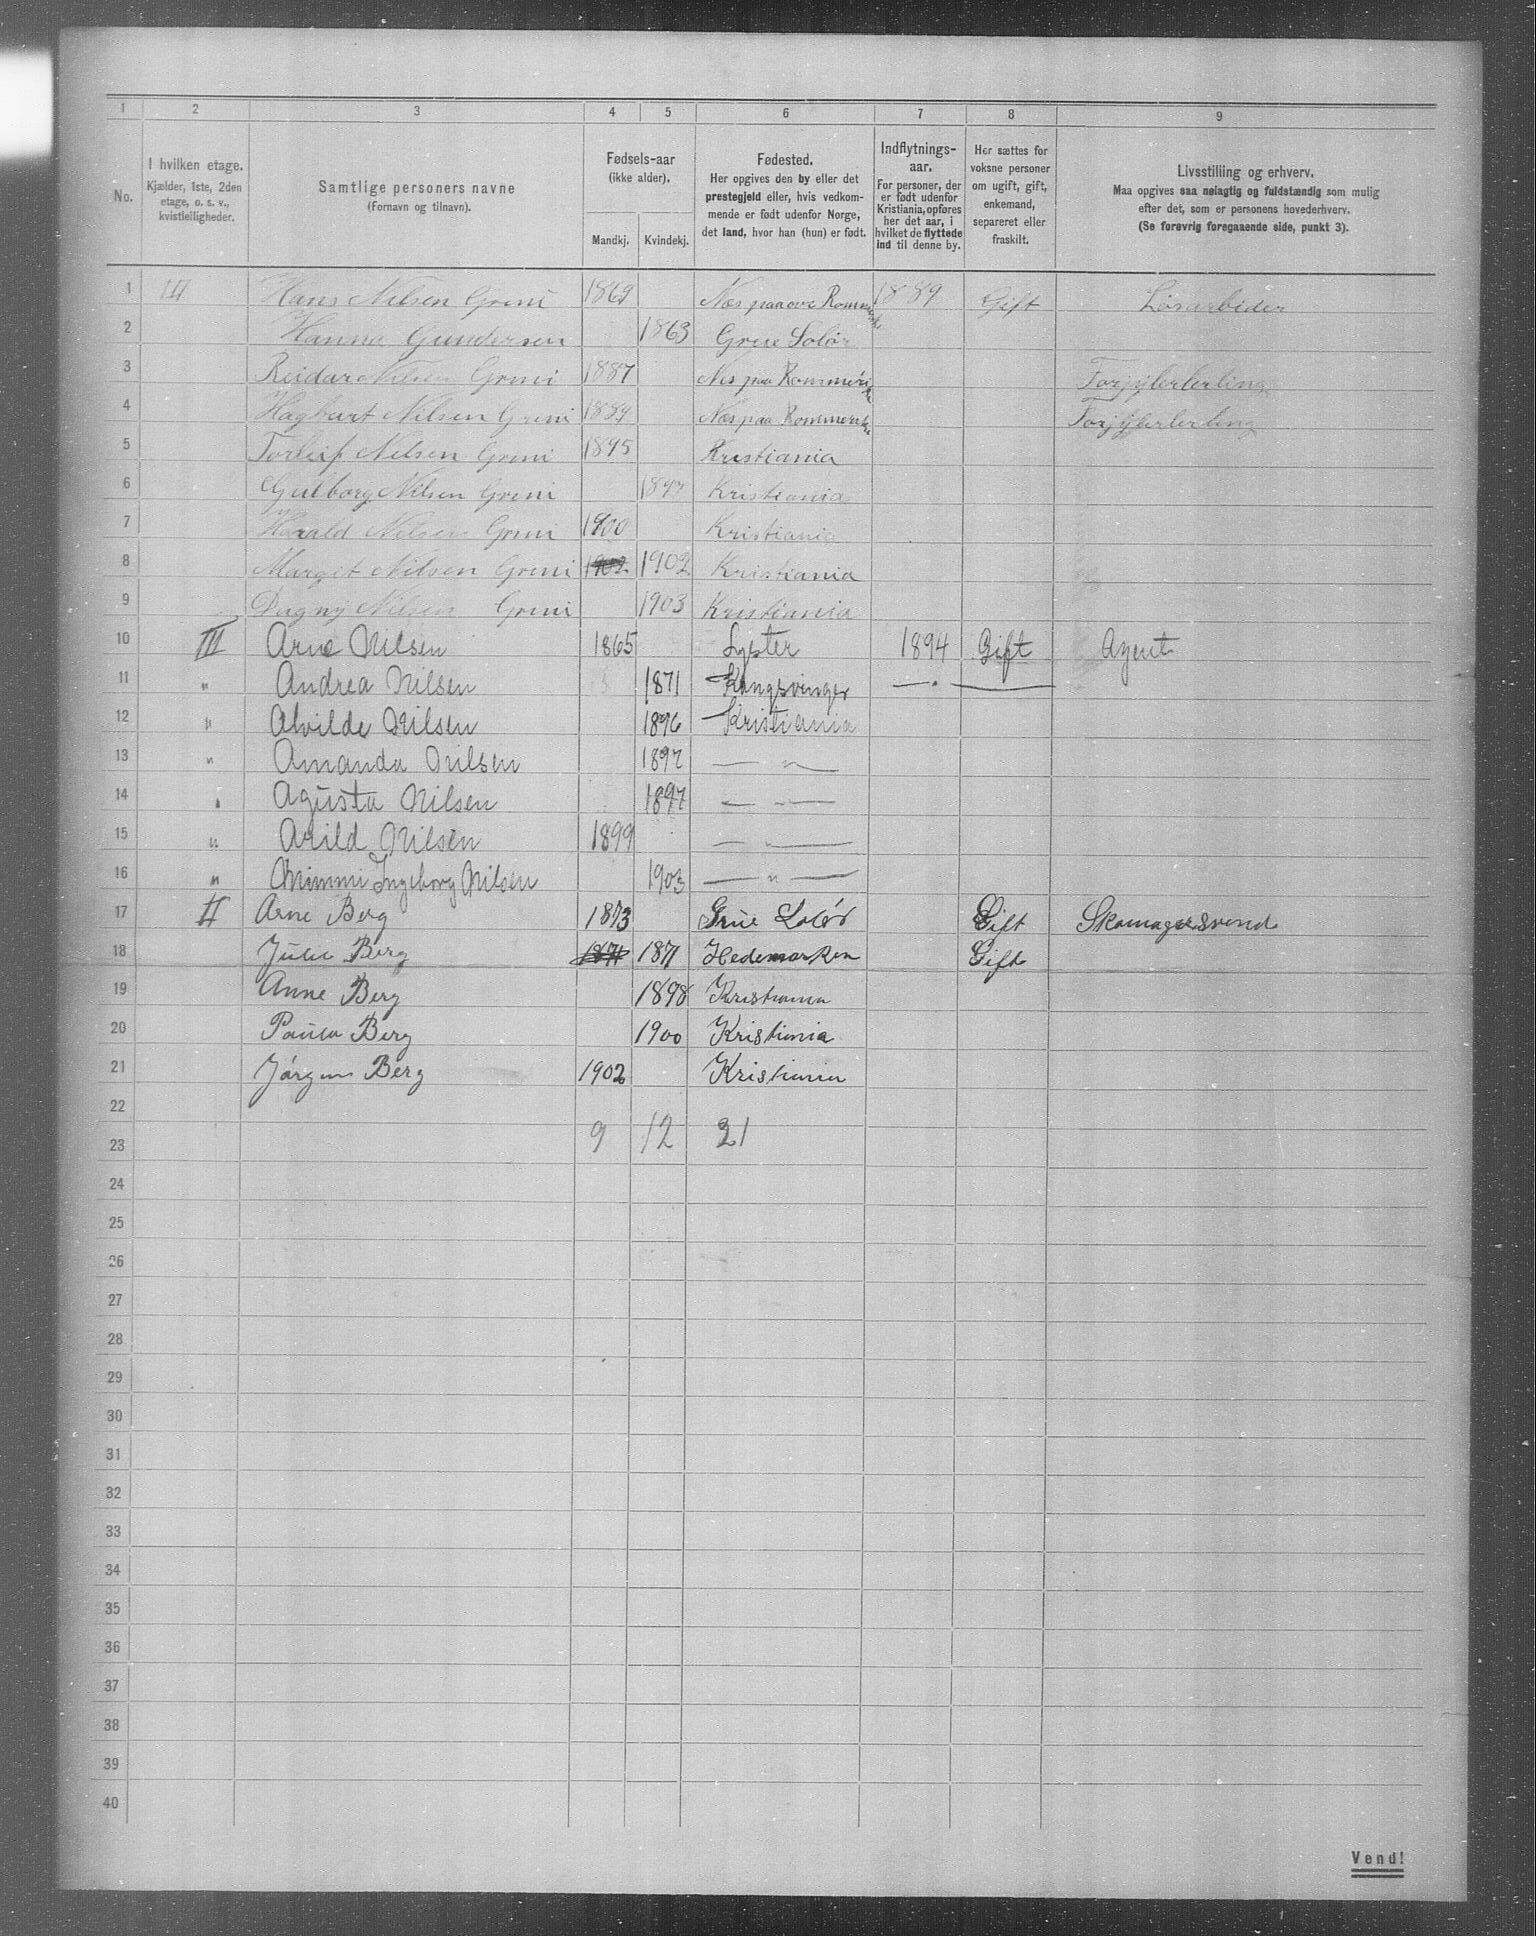 1 2 3 4 5 6 7 8 9
No.
I hvilken etage.
Kjælder, 1ste, 2den
etage, o. s. v.,
kvistleiligheder.
Samtlige personers navne
(Fornavn og tilnavn).
Fødsels-aar
(ikke alder).
Mandkj. Kvindekj.
Fødested.
Her opgives den by eller det
prestegjeld eller, hvis vedkom-
mende er født udenfor Norge,
det land, hvor han (hun) er født.
Indflytnings-
aar.
For personer, der
er født udenfor
Kristiania, opføres
her det aar, i
hvilket de flyttede
ind til denne by.
Her sættes for
voksne personer
om ugift, gift,
enkemand,
separeret eller
fraskilt.
Livsstilling og erhverv.
Maa opgives saa nøiagtig og fuldstændig som mulig
efter det, som er personens hovederhverv.
(Se forøvrig foregaaende side, punkt 3).
1 III Hans Nilsen Greni 1869 Næs paa øvre Romerike 1889 Gift Løsarbeider
2 Hanna Gundersen 1863 Grue Solør
3 Reidar Nilsen Greni 1887 Nes paa Rommerike
4 Hagbart Nilsen Greni 1889 Næs paa Rommerike
5 Torleif Nilsen Greni 1895 Kristiania
6 Gulborg Nilsen Greni 1897 Kristiania
7 Harald Nilsen Greni 1900 Kristiania
8 Margit Nilsen Greni 1902 1902 Kristiania
9 Dagny Nilsen Greni 1903 Kristiania
10 III Arne Nilsen 1865 Lyster 1894 Gift Agent
11 " Andrea Nilsen 1871 Kongsvinger —"—
12 " Alvilde Nilsen 1896 Kristiania
13 " Amanda Nilsen 1897 — " —
14 " Agusta Nilsen 1897 — " —
15 " Arild Nilsen 1899 — " —
16 " Mimmi Ingeborg Nilsen 1903 — " —
17 II Arne Berg 1873 Grue Solør Gift Skomagersvend
18 Julie Berg 1871 1871 Hedemarken Gift
19 Anne Berg 1898 Kristiania
20 Paula Berg 1900 Kristiania
21 Jørgen Berg 1902 Kristiania
22
23 9 12 21
24
25
26
27
28
29
30
31
32
33
34
35
36
37
38
39
40
Vend!